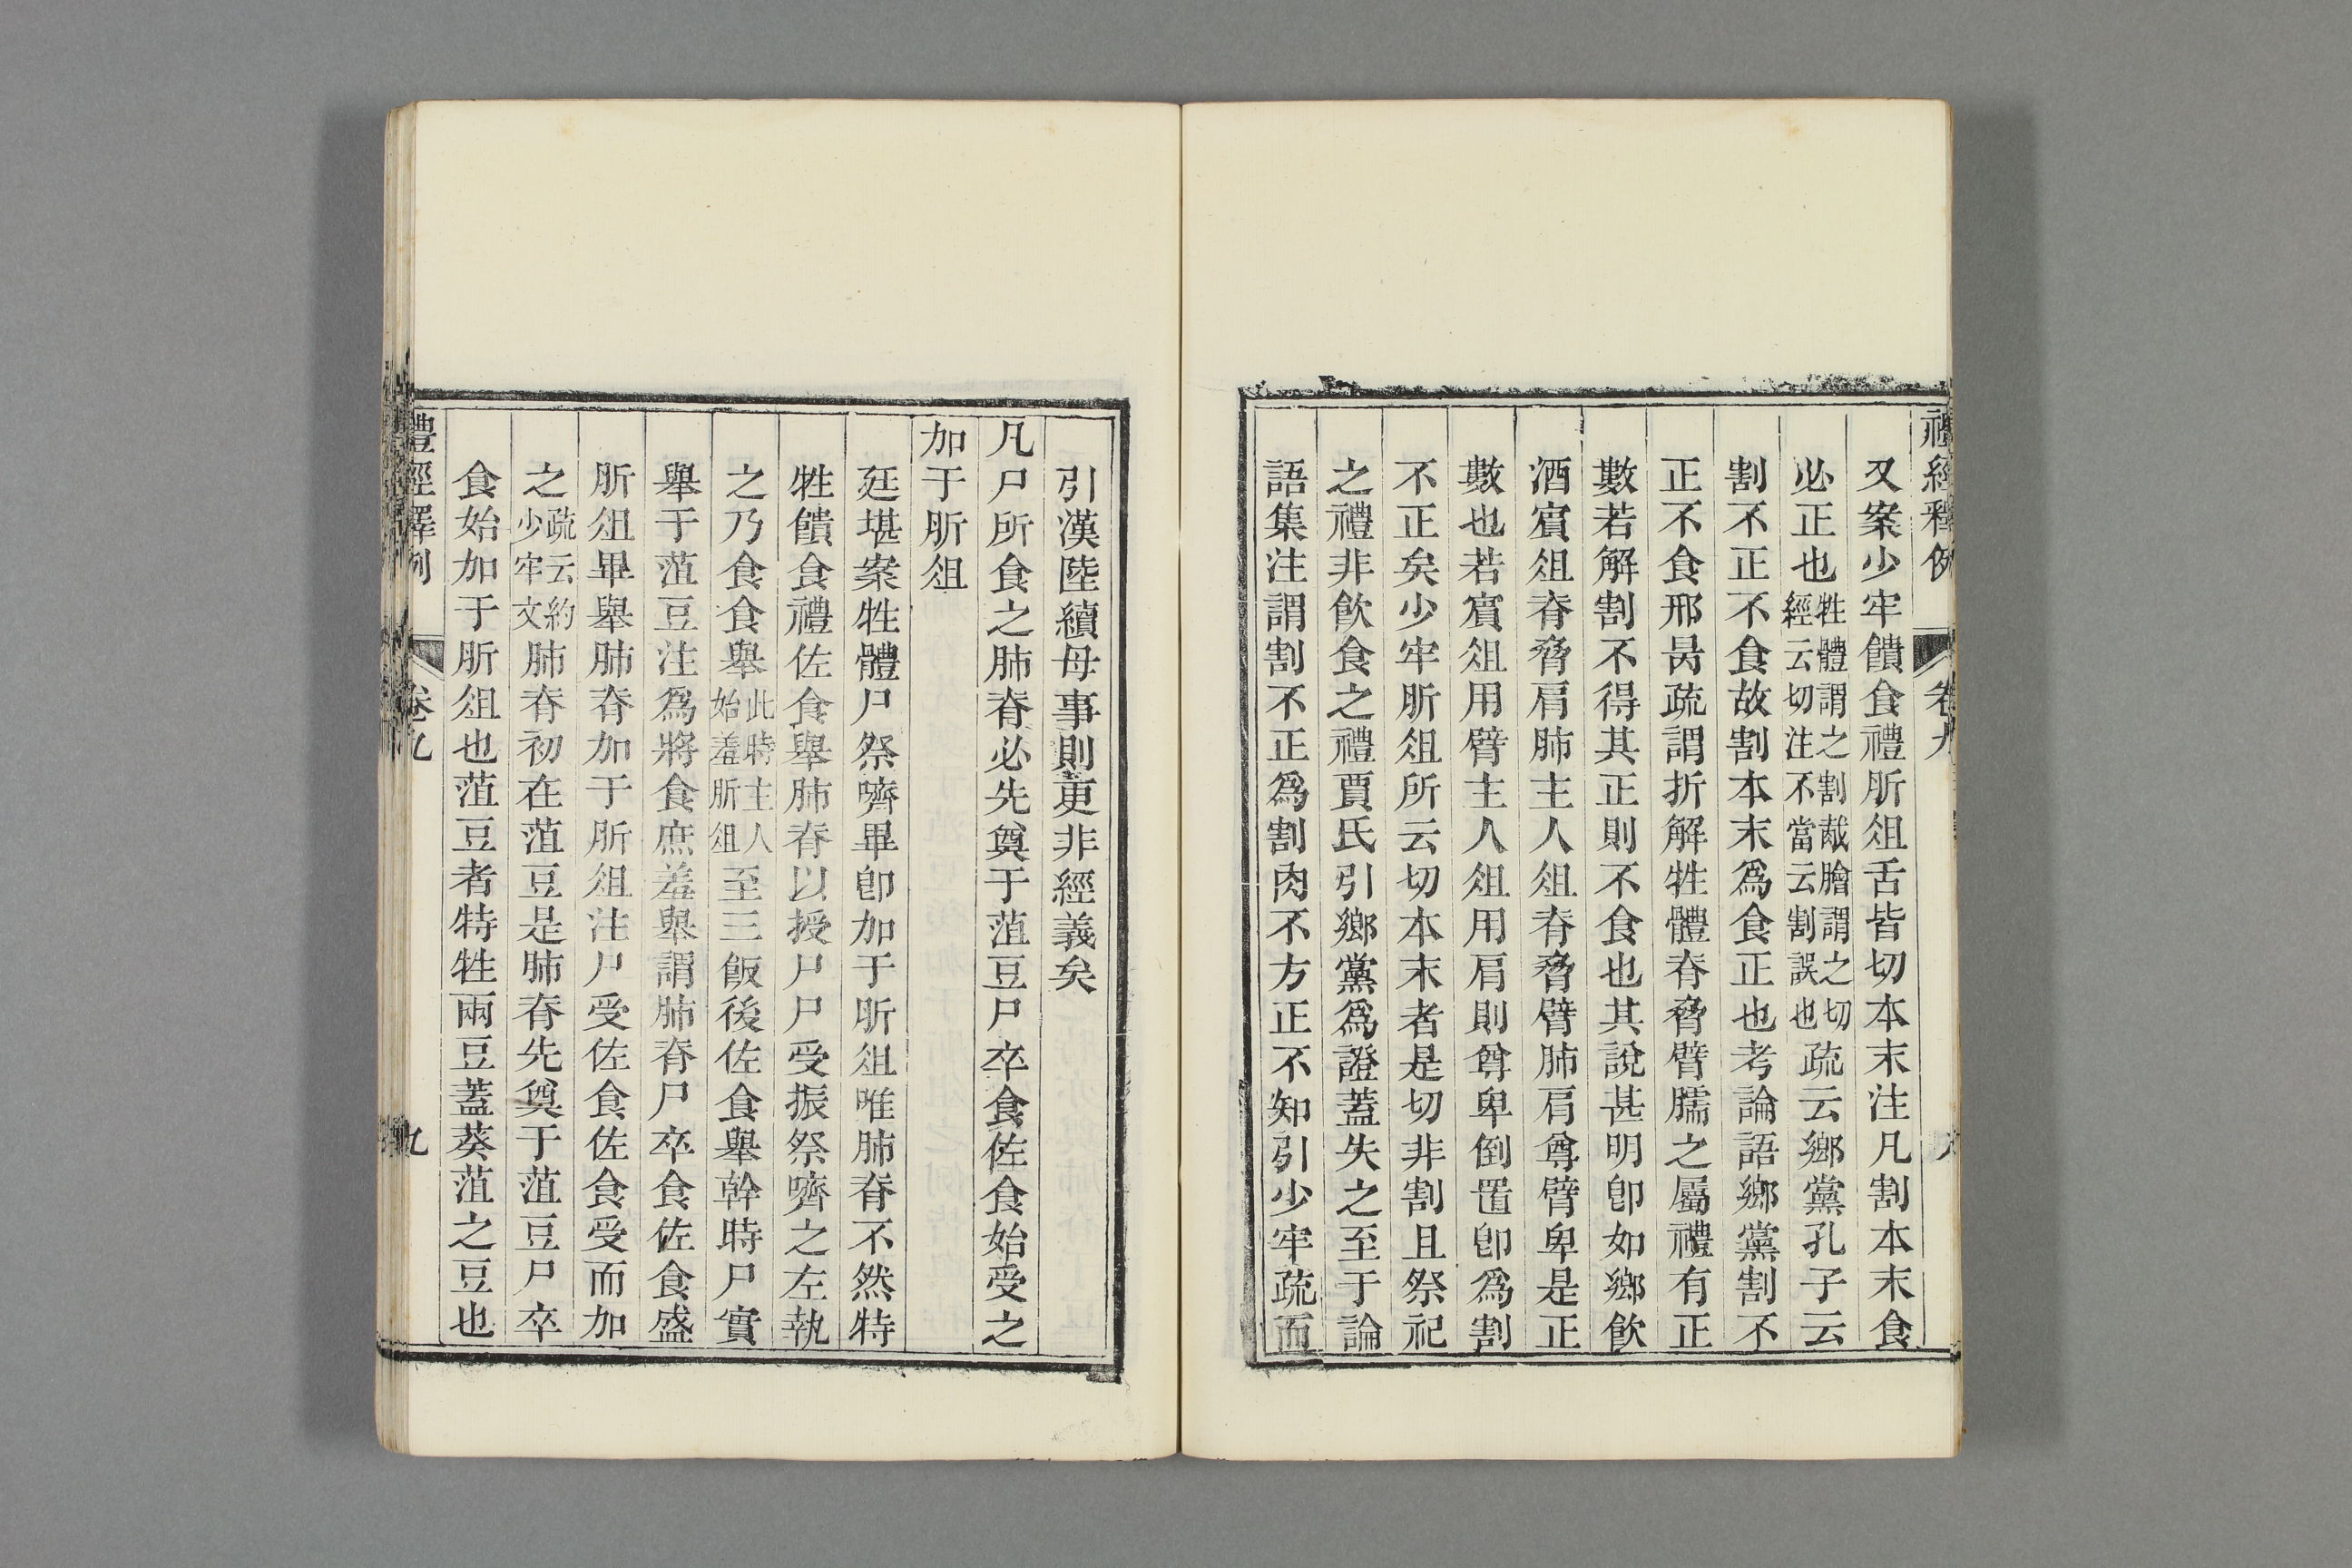 禮經釋例 卷九
又案少牢饋食禮肵俎舌皆切本末注凡割本末食
必正也牲體謂之割胾膾謂之切經云切注不當云割誤也疏云鄉黨孔子云
割不正不食故割本末爲食正也考論語鄉黨割不
正不食邢昺疏謂折解牲體脊脅臂臑之屬禮有正
數若解割不得其正則不食也其說甚明卽如鄉飲
酒賓俎脊脅肩肺主人俎脊脅臂肺肩尊臂卑是正
數也若賓俎用臂主人俎用肩則尊卑倒置卽爲割
不正矣少牢肵俎所云切本末者是切非割且祭祀
之禮非飲食之禮賈氏引鄉黨爲證蓋失之至于論
語集注謂割不正爲割肉不方正不知引少牢疏而
引漢陸續母事則更非經義矣
凡尸所食之肺脊必先奠于菹豆尸卒食佐食始受之
加于肵俎
廷堪案牲體尸祭嚌畢卽加于肵俎唯肺脊不然特
牲饋食禮佐食舉肺脊以授尸尸受振祭嚌之左執
之乃食食舉此時主人始羞肵俎至三飯後佐食舉幹時尸實
舉于菹豆注爲將食庶羞舉謂肺脊尸卒食佐食盛
肵俎畢舉肺脊加于肵俎注尸受佐食佐食受而加
之疏云約少牢文肺脊初在菹豆是肺脊先奠于菹豆尸卒
食始加于肵俎也菹豆者特牲兩豆蓋葵菹之豆也
禮經釋例 卷九 九